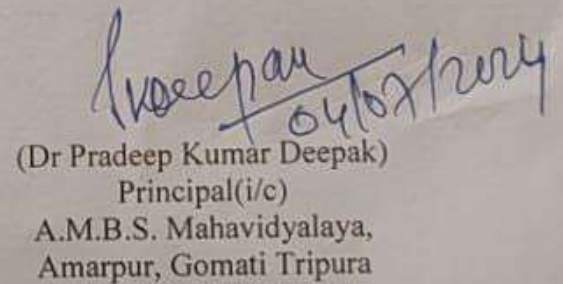 Pkdeepak
04/07/2024
(Dr Pradeep Kumar Deepak)
Principal(i/c)
A.M.B.S. Mahavidyalaya,
Amarpur, Gomati Tripura